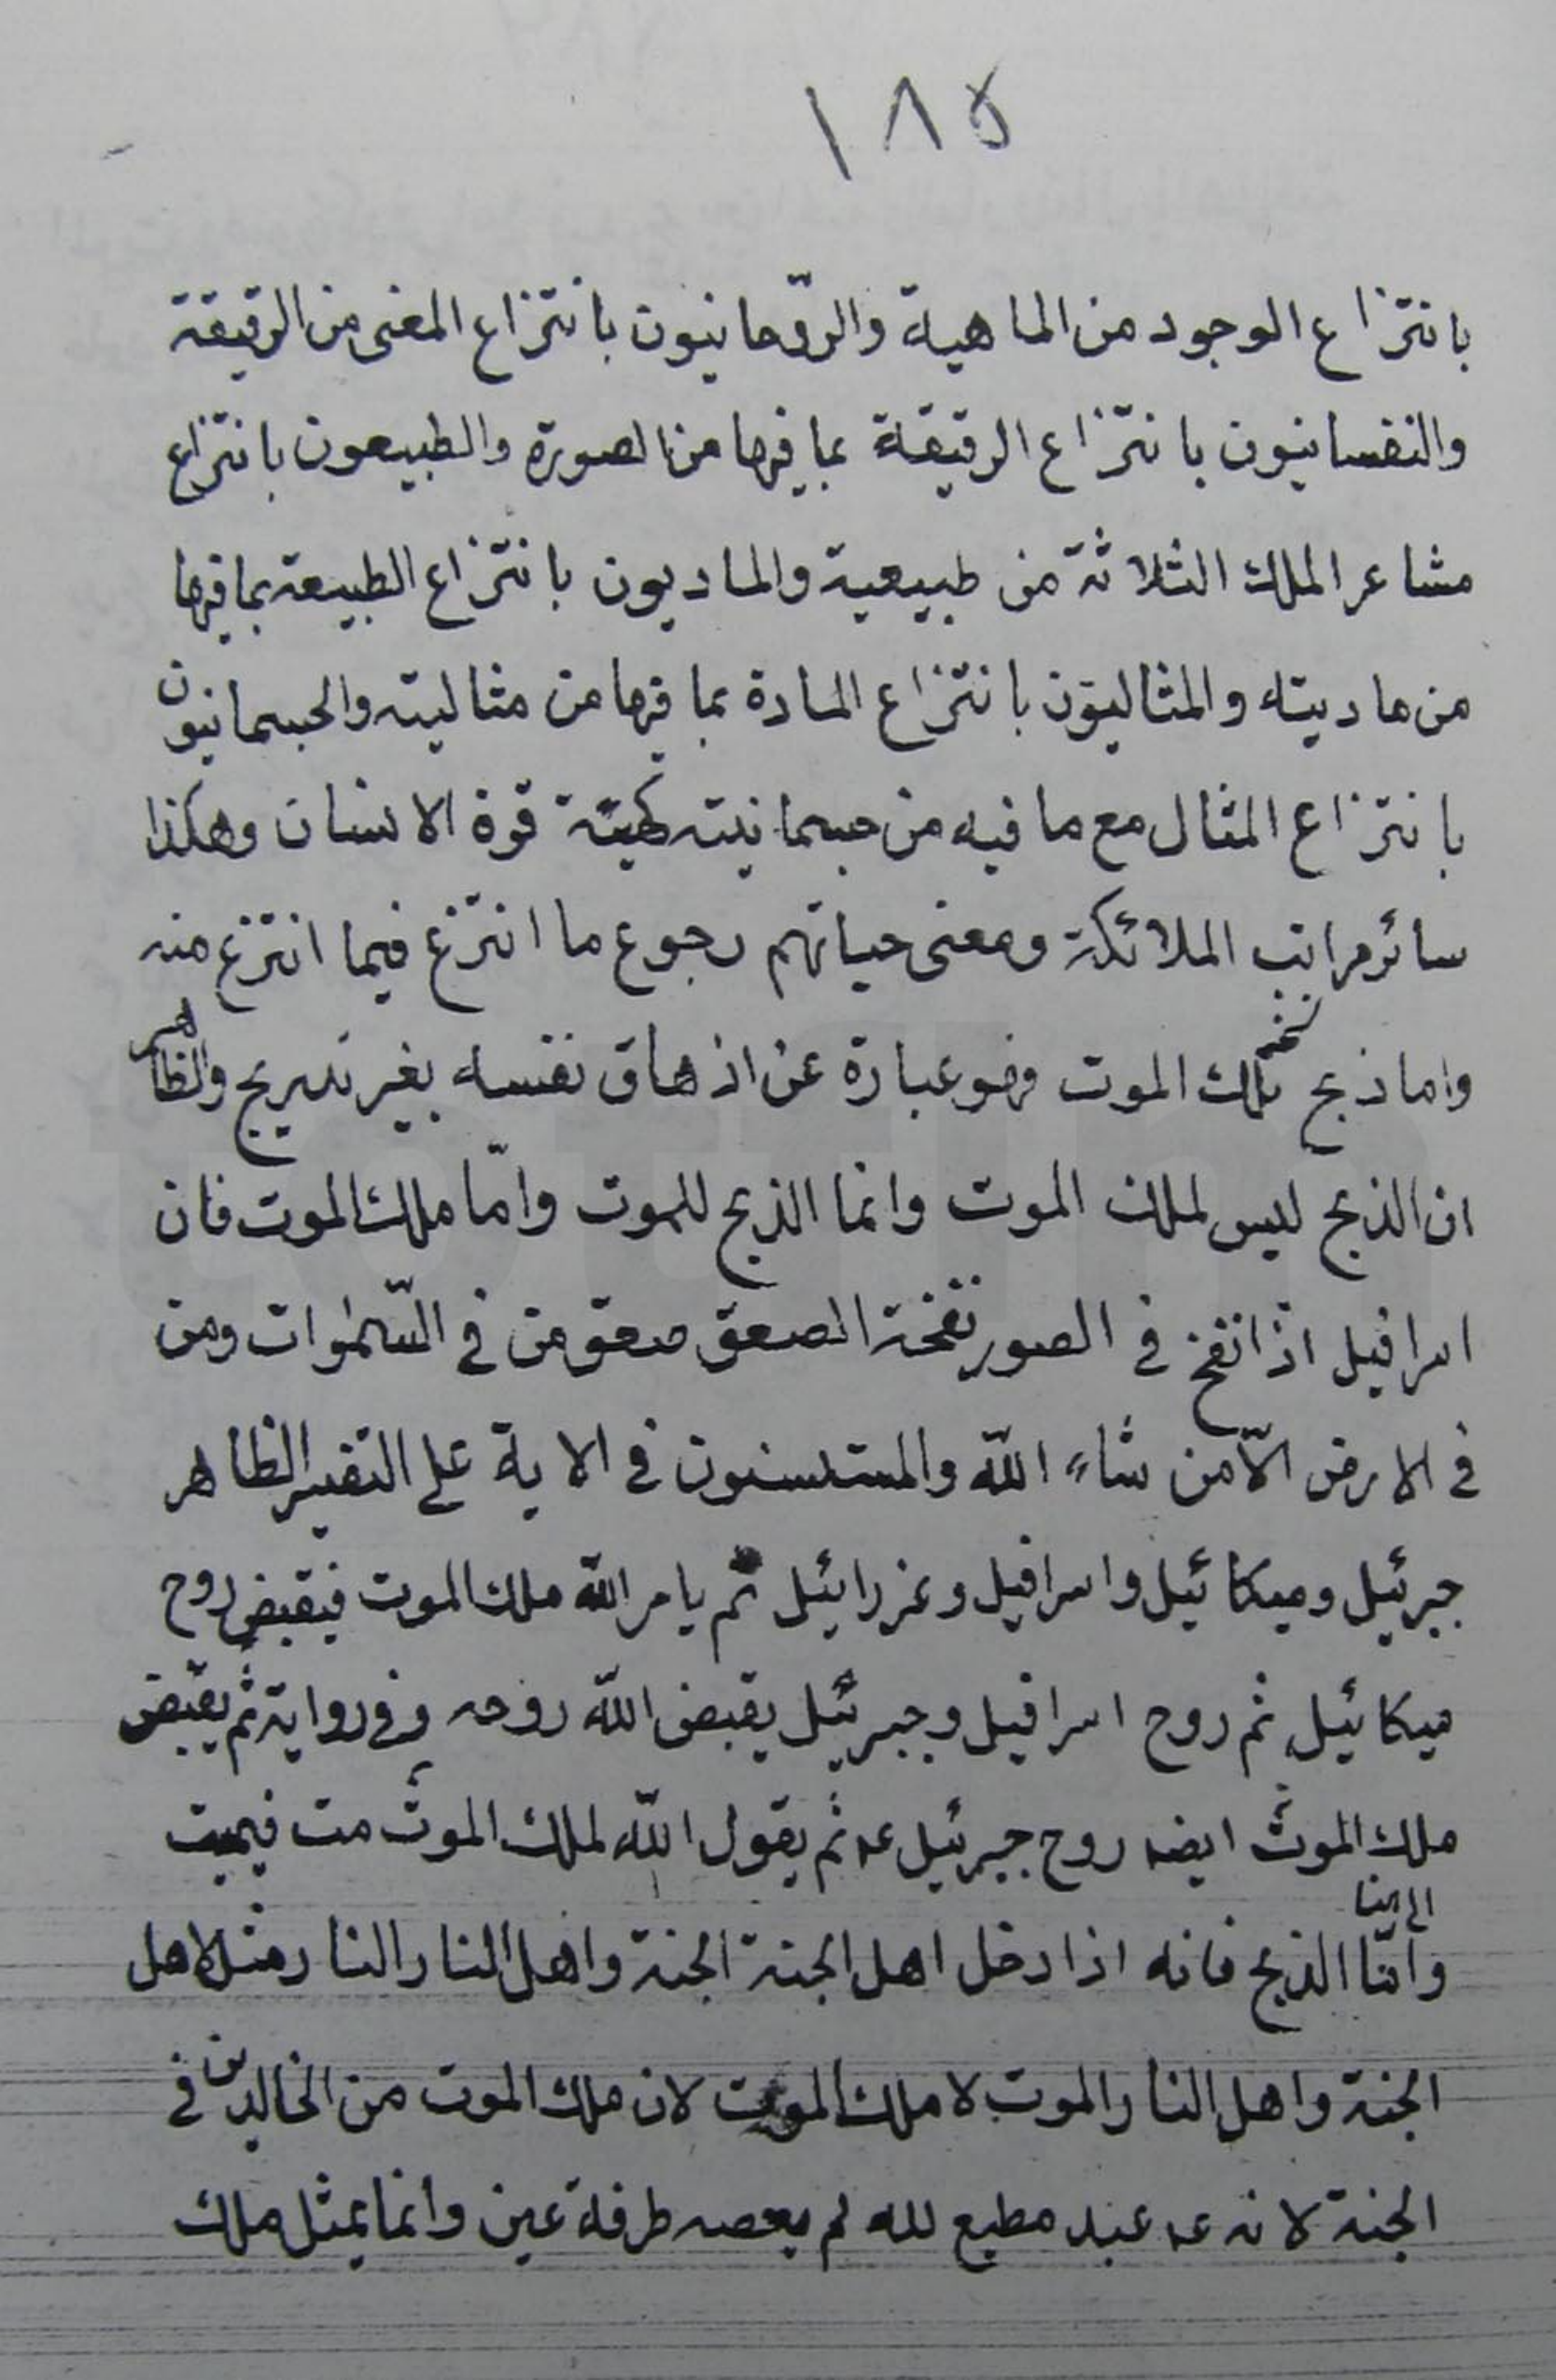 ١٨٥
بانتزاع الوجود من الماهية والرّوحانيون بانتزاع المعنى من الرقيقة
والنفسانيون بانتزاع الرقيقة بما فيها من الصورة والطبيعون بانتزاع
مشاعر الملك الثلاثة من طبيعية والماديون بانتزاع الطبيعة بما فيها
من ماديته والمثاليون بانتزاع المادة بما فيها من مثاليته والجسمانيون
بانتزاع المثال مع ما فيه من جسمانيته قوة الانسان وهكذا
سائر مراتب الملائكة ومعنى حياتهم رجوع ما انتزع فيما انتزع منه
واما ذبح ملك الموت فهو عبارة عن اذهاق نفسه بغير تدريج والظاهر
ان الذبح ليس لملك الموت وانما الذبح للموت وامّا ملك الموت فان
اسرافيل اذا نفخ في الصور نفخة الصعق صعق من في السّموات ومن
في الارض الّا من شاء اللّه والمستثنون في الاية على التفسير الظاهر
جبرئيل وميكائيل واسرافيل وعزرائيل ثم يامر اللّه ملك الموت فيقبض روح
ميكائيل ثم روح اسرافيل وجبرئيل يقبض اللّه روحه وفى رواية ثم يقبض
ملك الموت ايضه روح جبرئيل عه ثم يقول اللّه لملك الموت مت فيميت
وامّا الذبح فانه اذا دخل اهل الجنة الجنة واهل النار النار مثل لاهل
الجنة واهل النار الموت لا ملك الموت لان ملك الموت من الخالدين في
الجنة لانه عه عبد مطيع لله لم يعصه طرفة عين وانما يمثل ملك